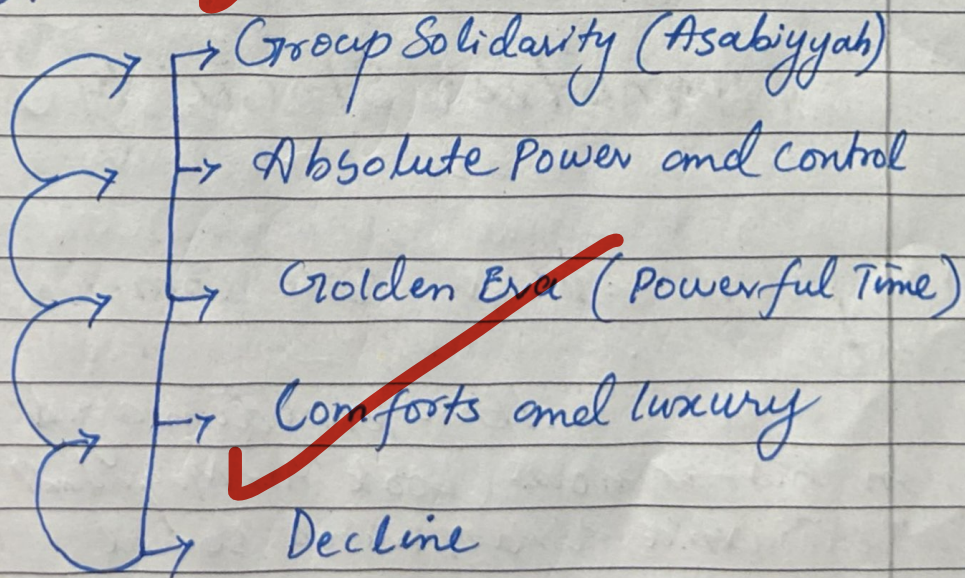 Group Solidarity (Asabiyyah)
Absolute Power and control
Golden Era (Powerful Time)
Comforts and luxury
Decline